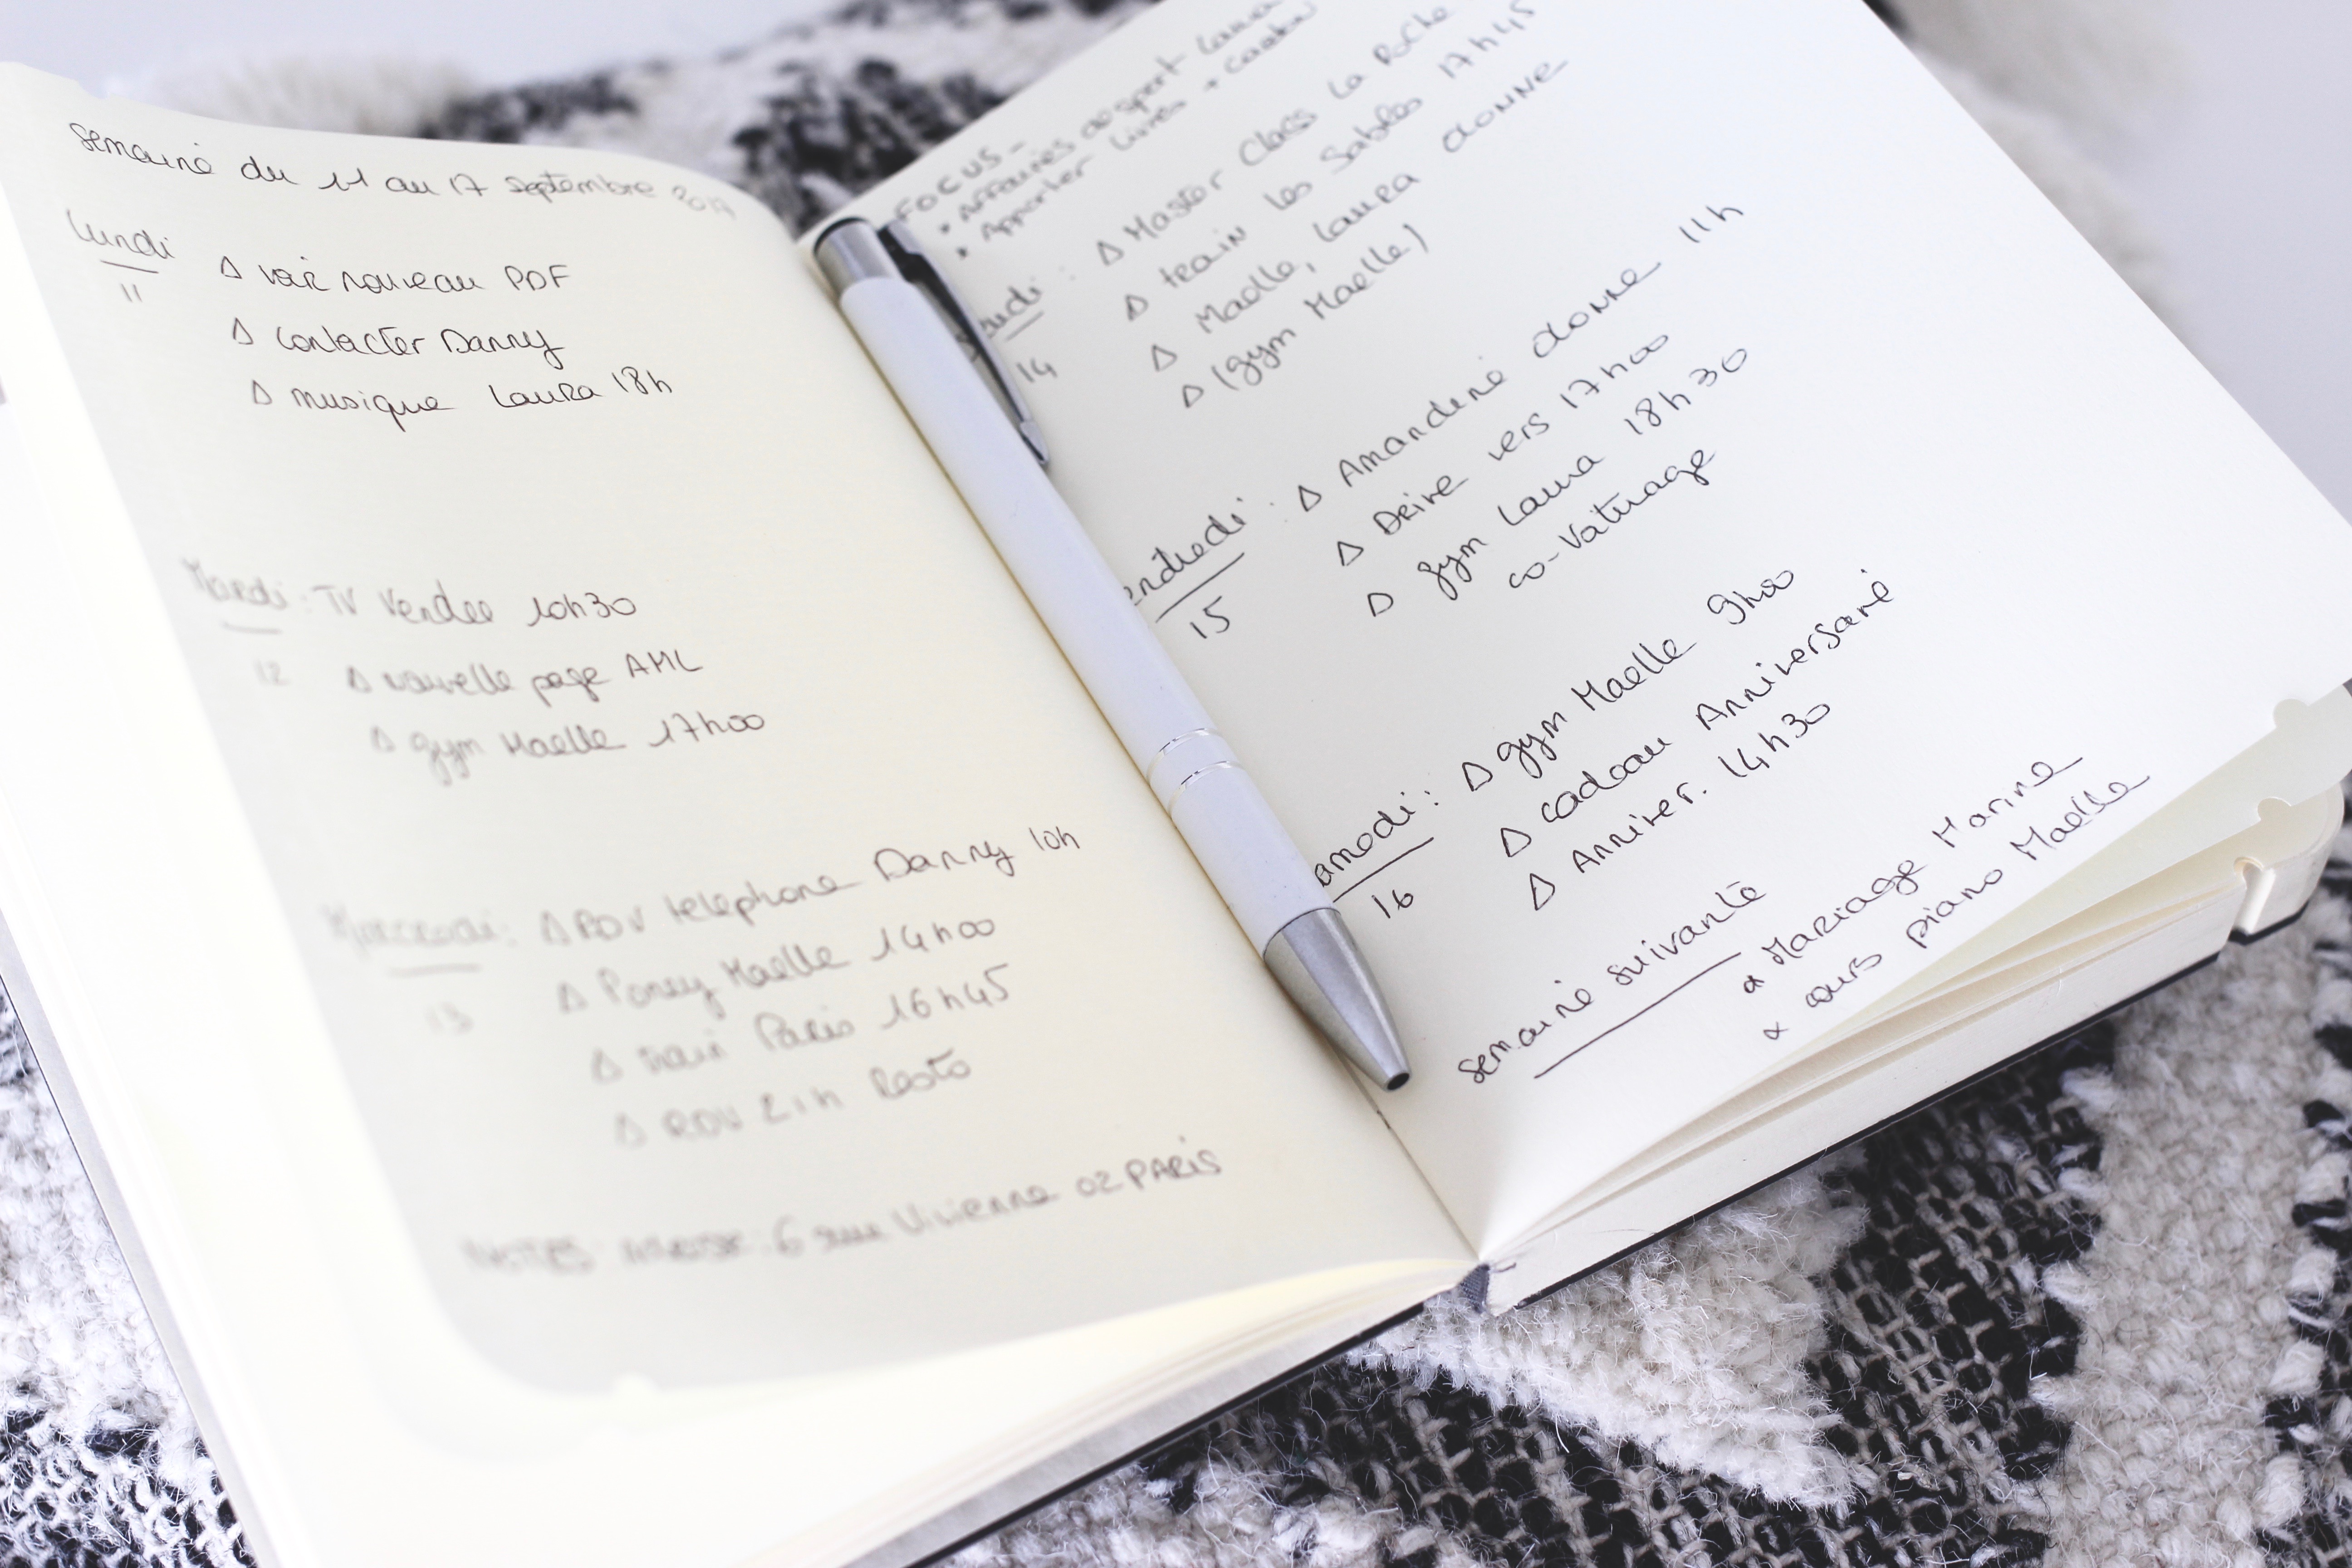 Semaine du 11 au 17 septembre 2017
Lundi
11
Δ voir nouveau PDF
Δ contacter Danny
Δ musique Laura 18h
Mardi : TV Vendee 10h30
12
Δ nouvelle page AML
Δ gym Maelle 17h00
Mercredi : Δ RDV telephone Danny 10h
13
Δ Poney Maelle 14h00
Δ train Paris 16h45
Δ RDV 21h Resto
NOTES : 6 rue Vivienne 02 PARIS
FOCUS -
• Affaires de sport Laura
• Apporter livres +
eudi : Δ Master Class La Roche
14
Δ train les Sables 17h45
Δ Maelle, Laura donne
Δ (gym Maelle)
endredi : Δ Amandine donne 11h
15
Δ Drive vers 17h00
Δ gym Laura 18h30
co-voiturage
amedi : Δ gym Maelle 9h00
16
Δ cadeau Anniversaire
Δ Anniver. 14h30
semaine suivante
Mariage Marine
cours piano Maelle